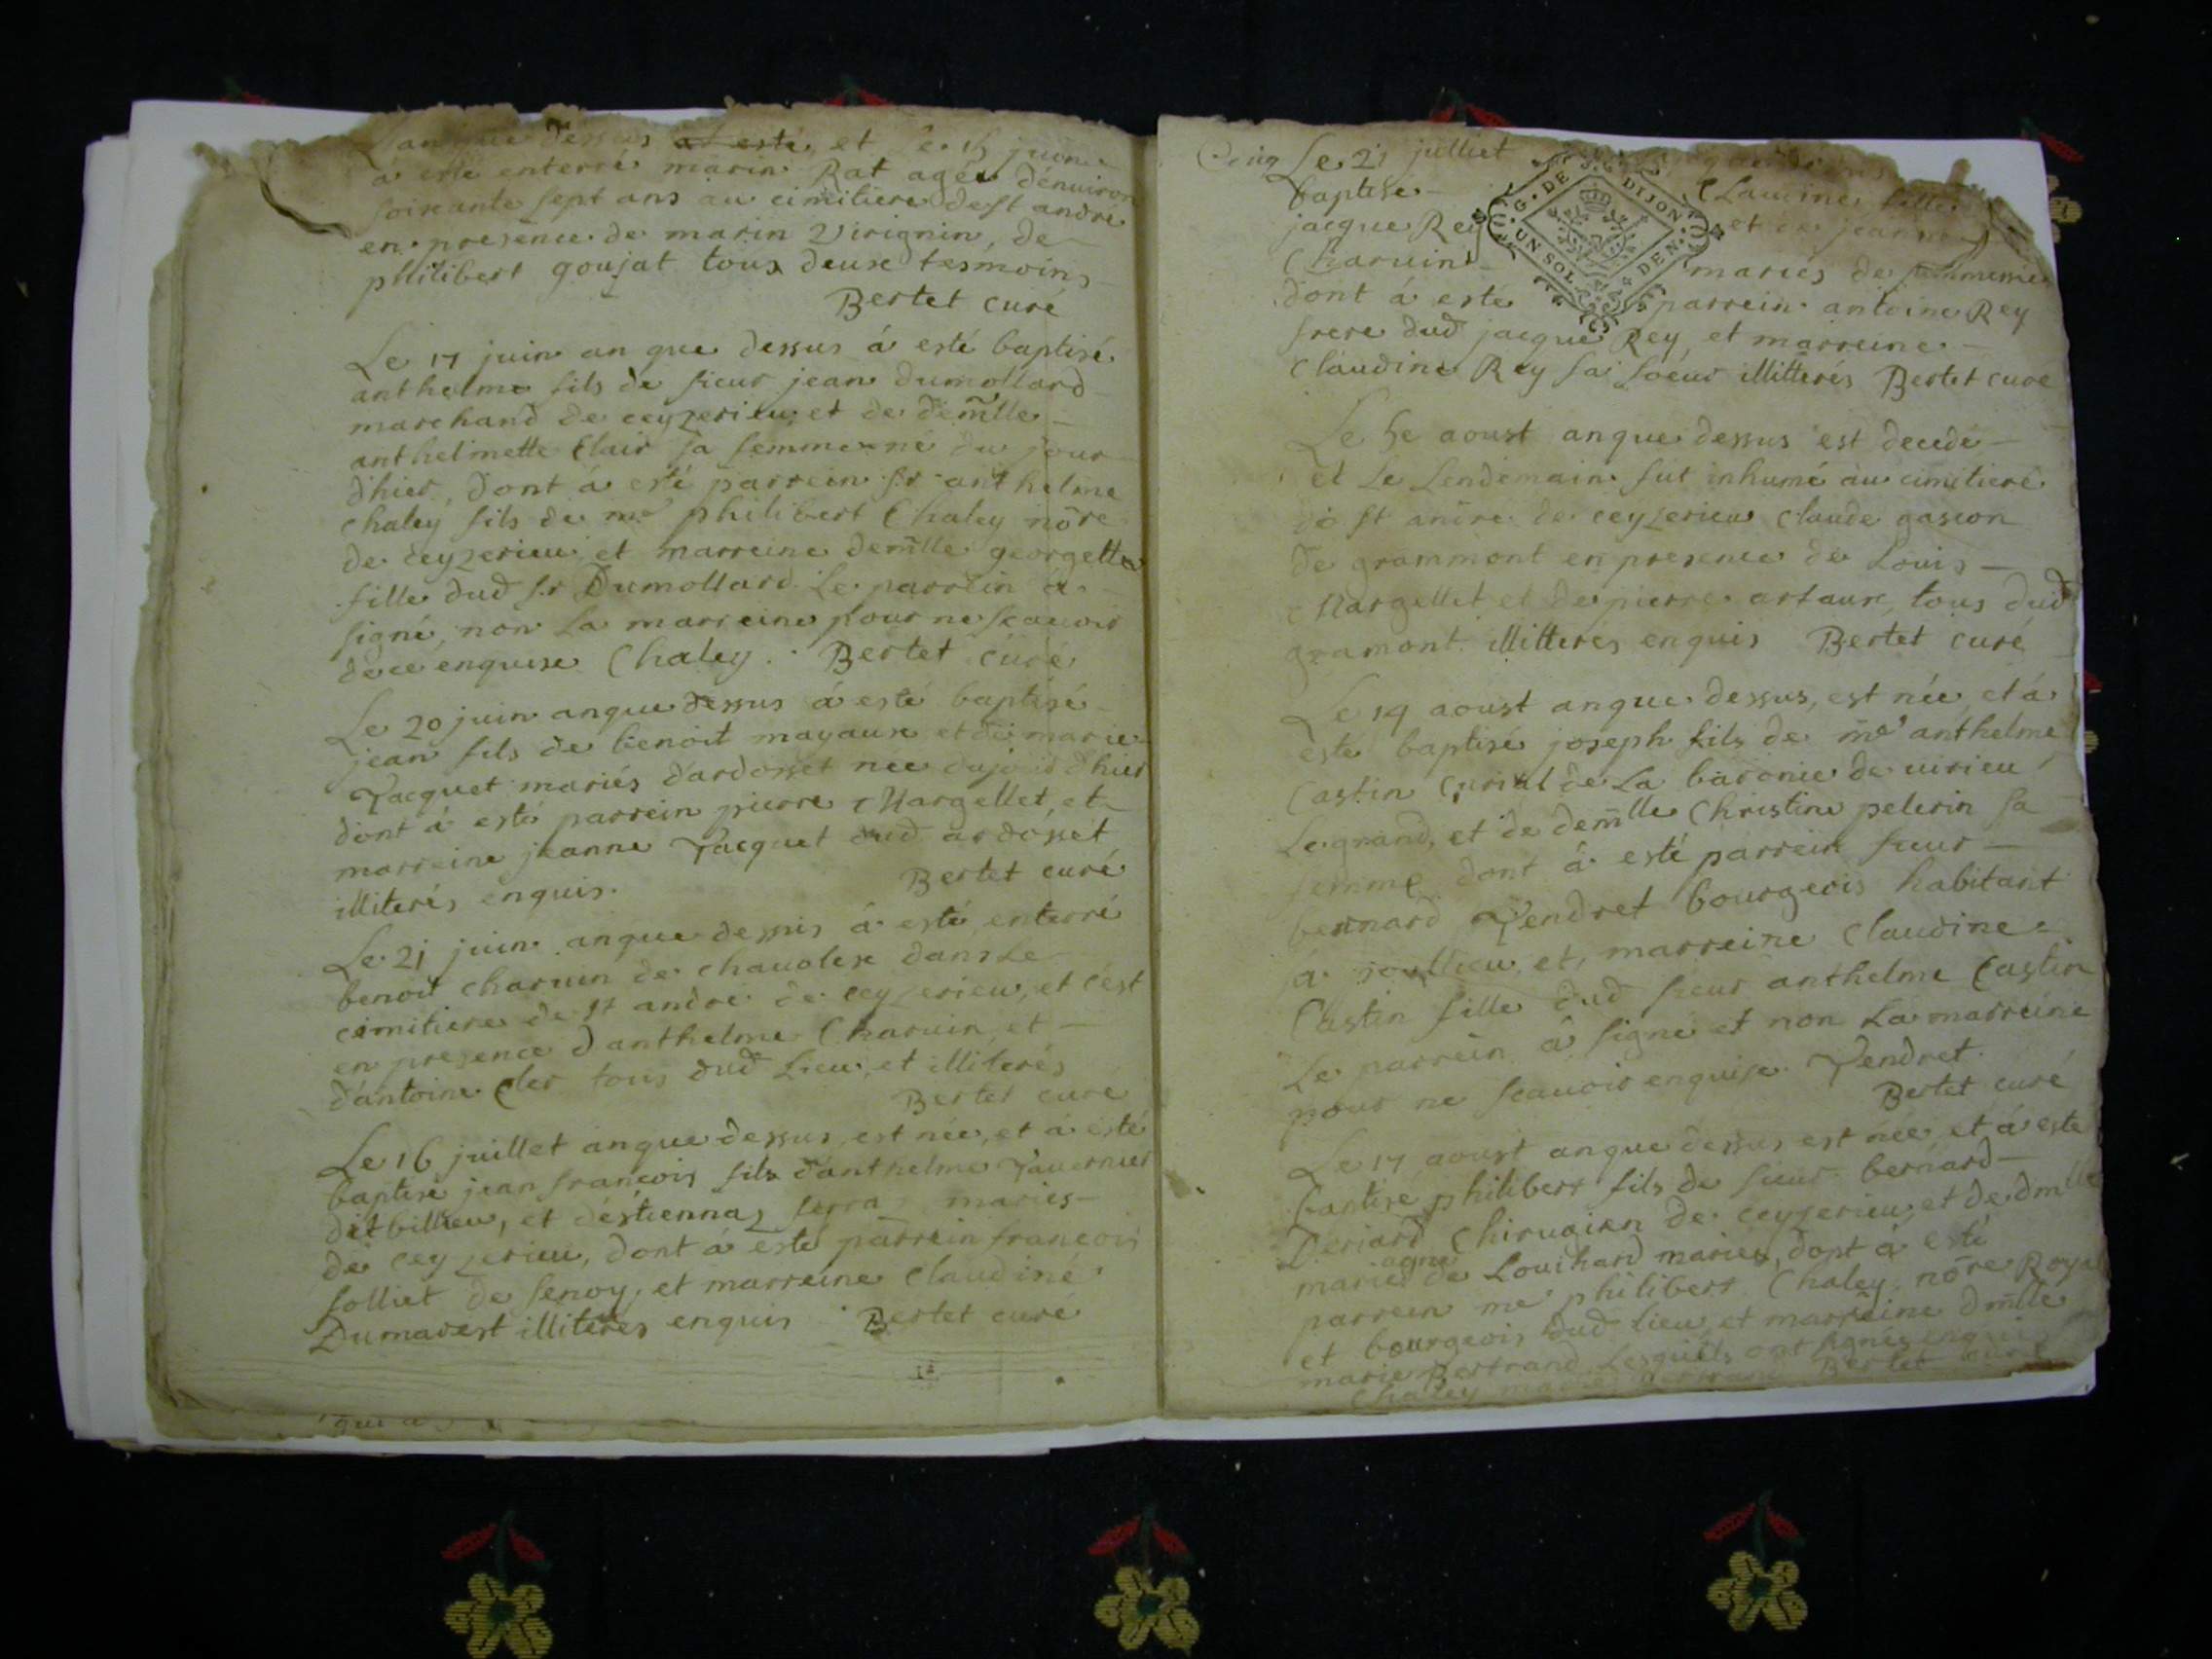 L'an que dessus a esté et le 15 juin
a esté enterré marin Rat agée dénuiron
soixante sept ans au cimitiere de st andre
en presence de marin Virignin, de
philibert goujat tous deux tesmoins
Bertet curé
Le 17 juin an que dessus á esté baptisé
anthelme fils de sieur jean dumollard
marchand de ceyzerieu et de demlle
anthelmette Clair sa femme né du jour
d'hier, dont á esté parrein sr anthelme
Chaley fils de me philibert Chaley nore
de ceyzerieu, et marreine demlle georgette
fille dud sr Dumollard. Le parrein a
signé, non la marreine pour ne scauoir
de ce enquise Chaley. Bertet curé
Le 20 juin an que dessus á esté baptisé
jean fils de benoit mayaux et de marie
Jacquet mariés d'ardosset née dujourd'hier
dont á esté parrein pierre Margellet, et
marreine jeanne Jacquet dud ardosset
illiterés enquis. Bertet curé
Le 21 juin an que dessus á esté enterré
benoit charuin de chauolex dans le
cimitiere de st andré de ceyzerieu, et c'est
en presence d anthelme Charuin et
d'antoine Cler tous dud Lieu, et illiterés
Bertet curé
Le 16 juillet an que dessus, est née, et á esté
baptisé jean francois fils d'anthelme Tauernier
dit billieu, et déstiennaz serra mariés
de ceyzerieu, dont á esté parrein francois
solliet de senoy, et marreine claudine
Dumarest illiterés enquis Bertet curé
qui a
Cinq Le 21 julliet
baptisé Claudine fille
jacque Rey et de jeanne
Charuin mariés de
dont á esté parrein antoine Rey
frere dud jacque Rey et marreine
Claudine Rey sa soeur illitterés Bertet curé
G. DE DIJON
UN SOL 4 DEN
Le 5e aoust an que dessus est decedé
et Le Lendemain fut inhumé au cimitiere
de st andre de ceyzerieu claude gascon
de grammont en presence de Louis
Margellet et de pierre artaux, tous dud
gramont illitterés enquis Bertet curé
Le 14 aoust an que dessus, est née, et á
esté baptisé joseph fils de me anthelme
Castin Curial de La baronie de uirieu
Le grand, et de demlle Christine pelerin sa
femme dont á esté parrein sieur
bernard Vendret bourgeois habitant
á et, marreine Claudine
Castin fille dud sieur anthelme Castin
Le parrein á signé et non La marreine
pour ne scauoir enquise Vendret.
Bertet curé
Le 17 aoust an que dessus est née, et á esté
baptisé philibert fils de sieur bernard
Deriard Chirugien de ceyzerieu, et de dmlle
marie agne de Louihard mariés, dont á esté
parrein me philibert Chaley nore Royal
et bourgeois dud lieu, et marreine dmlle
marie Bertrand Lesquels ont signés enquis
Chaley marie Bertrand Bertet curé